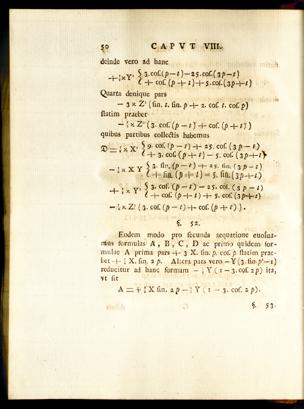 50 CAPVT VIII.
deinde vero ad hanc
3. cof. (p − t) − 25. cof. (3p − t)
+ cof. (p + t) − 5. cof. (3p + t)
Quarta denique pars
− 3 × Z² (fin. t. fin. p + 2. cof. t. cof. p)
ftatim praebet
(3. cof. (p − t) + cof. (p + t))
quibus partibus collectis habemus
9. cof. (p − t) + 25. cof. (3p − t)
+ 3. cof. (p + t) − 5. cof. (3p + t)
− X Y 3. fin. (p − t) + 25. fin. (3p − t)
+ fin. (p + t) − 5. fin. (3p + t)
3. cof. (p − t) − 25. cof. (3p − t)
+ cof. (p + t) + 5. cof. (3p + t)
(3. cof. (p − t) + cof. (p + t)).
§. 52.
Eodem modo pro fecunda aequatione euolua-
mus formulas A, B, C, D ac primo quidem for-
mulae A prima pars + 3 X. fin. p. cof. p ftatim prae-
bet X. fin. 2 p. Altera pars vero − Y (3. fin. p² − 1)
reducitur ad hanc formam Y (1 − 3. cof. 2 p) ita,
vt fit
A = + X. fin. 2 p − Y (1 − 3. cof. 2 p).
§. 53.